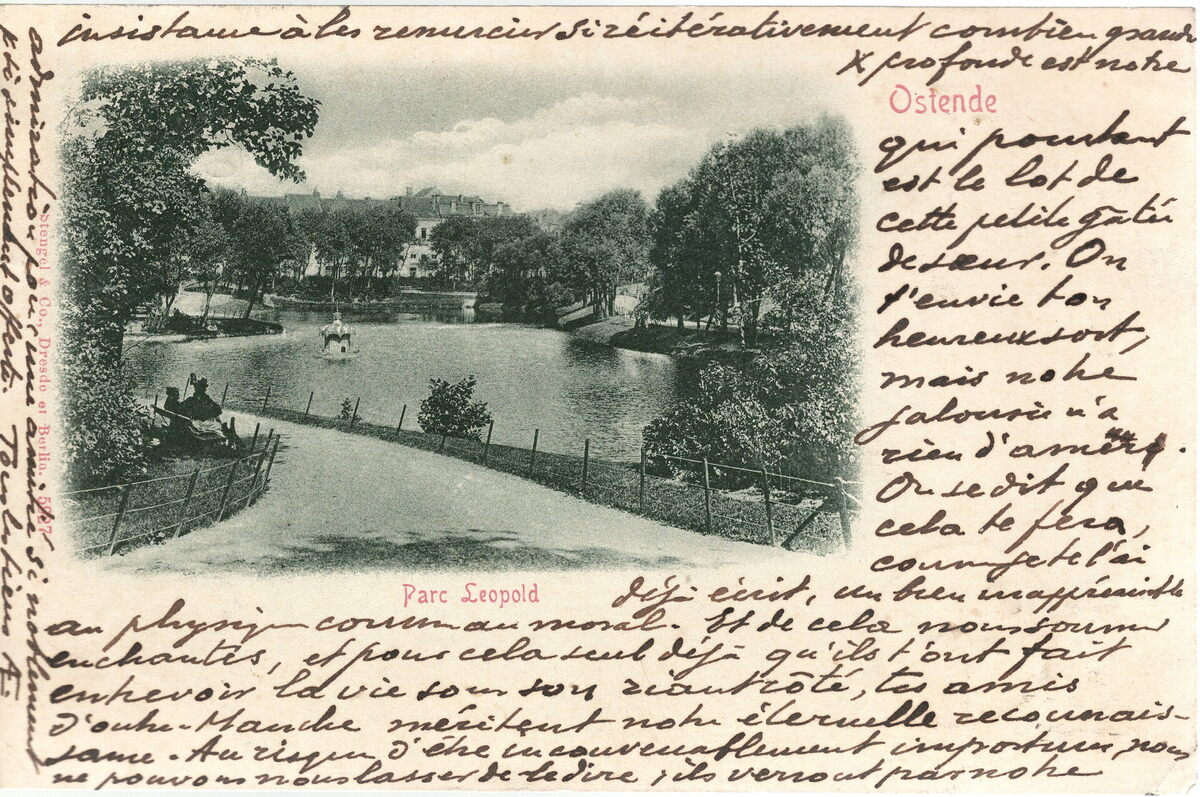 Ostende
qui pourtant
est le lot de
cette petite gâtée
de sœur. On
t'envie ton
heureux sort,
mais notre
jalousie n'a
rien d'amer.
On se dit que
cela te fera,
comme je te l'ai
déjà écrit, un bien inappréciable
au physique comme au moral. Et de cela nous sommes
enchantés, et pour cela seul déjà qu'ils t'ont fait
entrevoir la vie sous son riant côté, tes amis
d'outre-Manche méritent notre éternelle reconnais-
sance. Au risque d'être inconvenablement importuns, nous
ne pouvons nous lasser de le dire, ils verront par notre
insistance à les remercier si réitérativement combien grande
& profonde est notre
admiration pour une amitié si noblement
& si simplement offerte. Tout à tiens A.
Parc Leopold
Stengel & Co., Dresde et Berlin. 5827